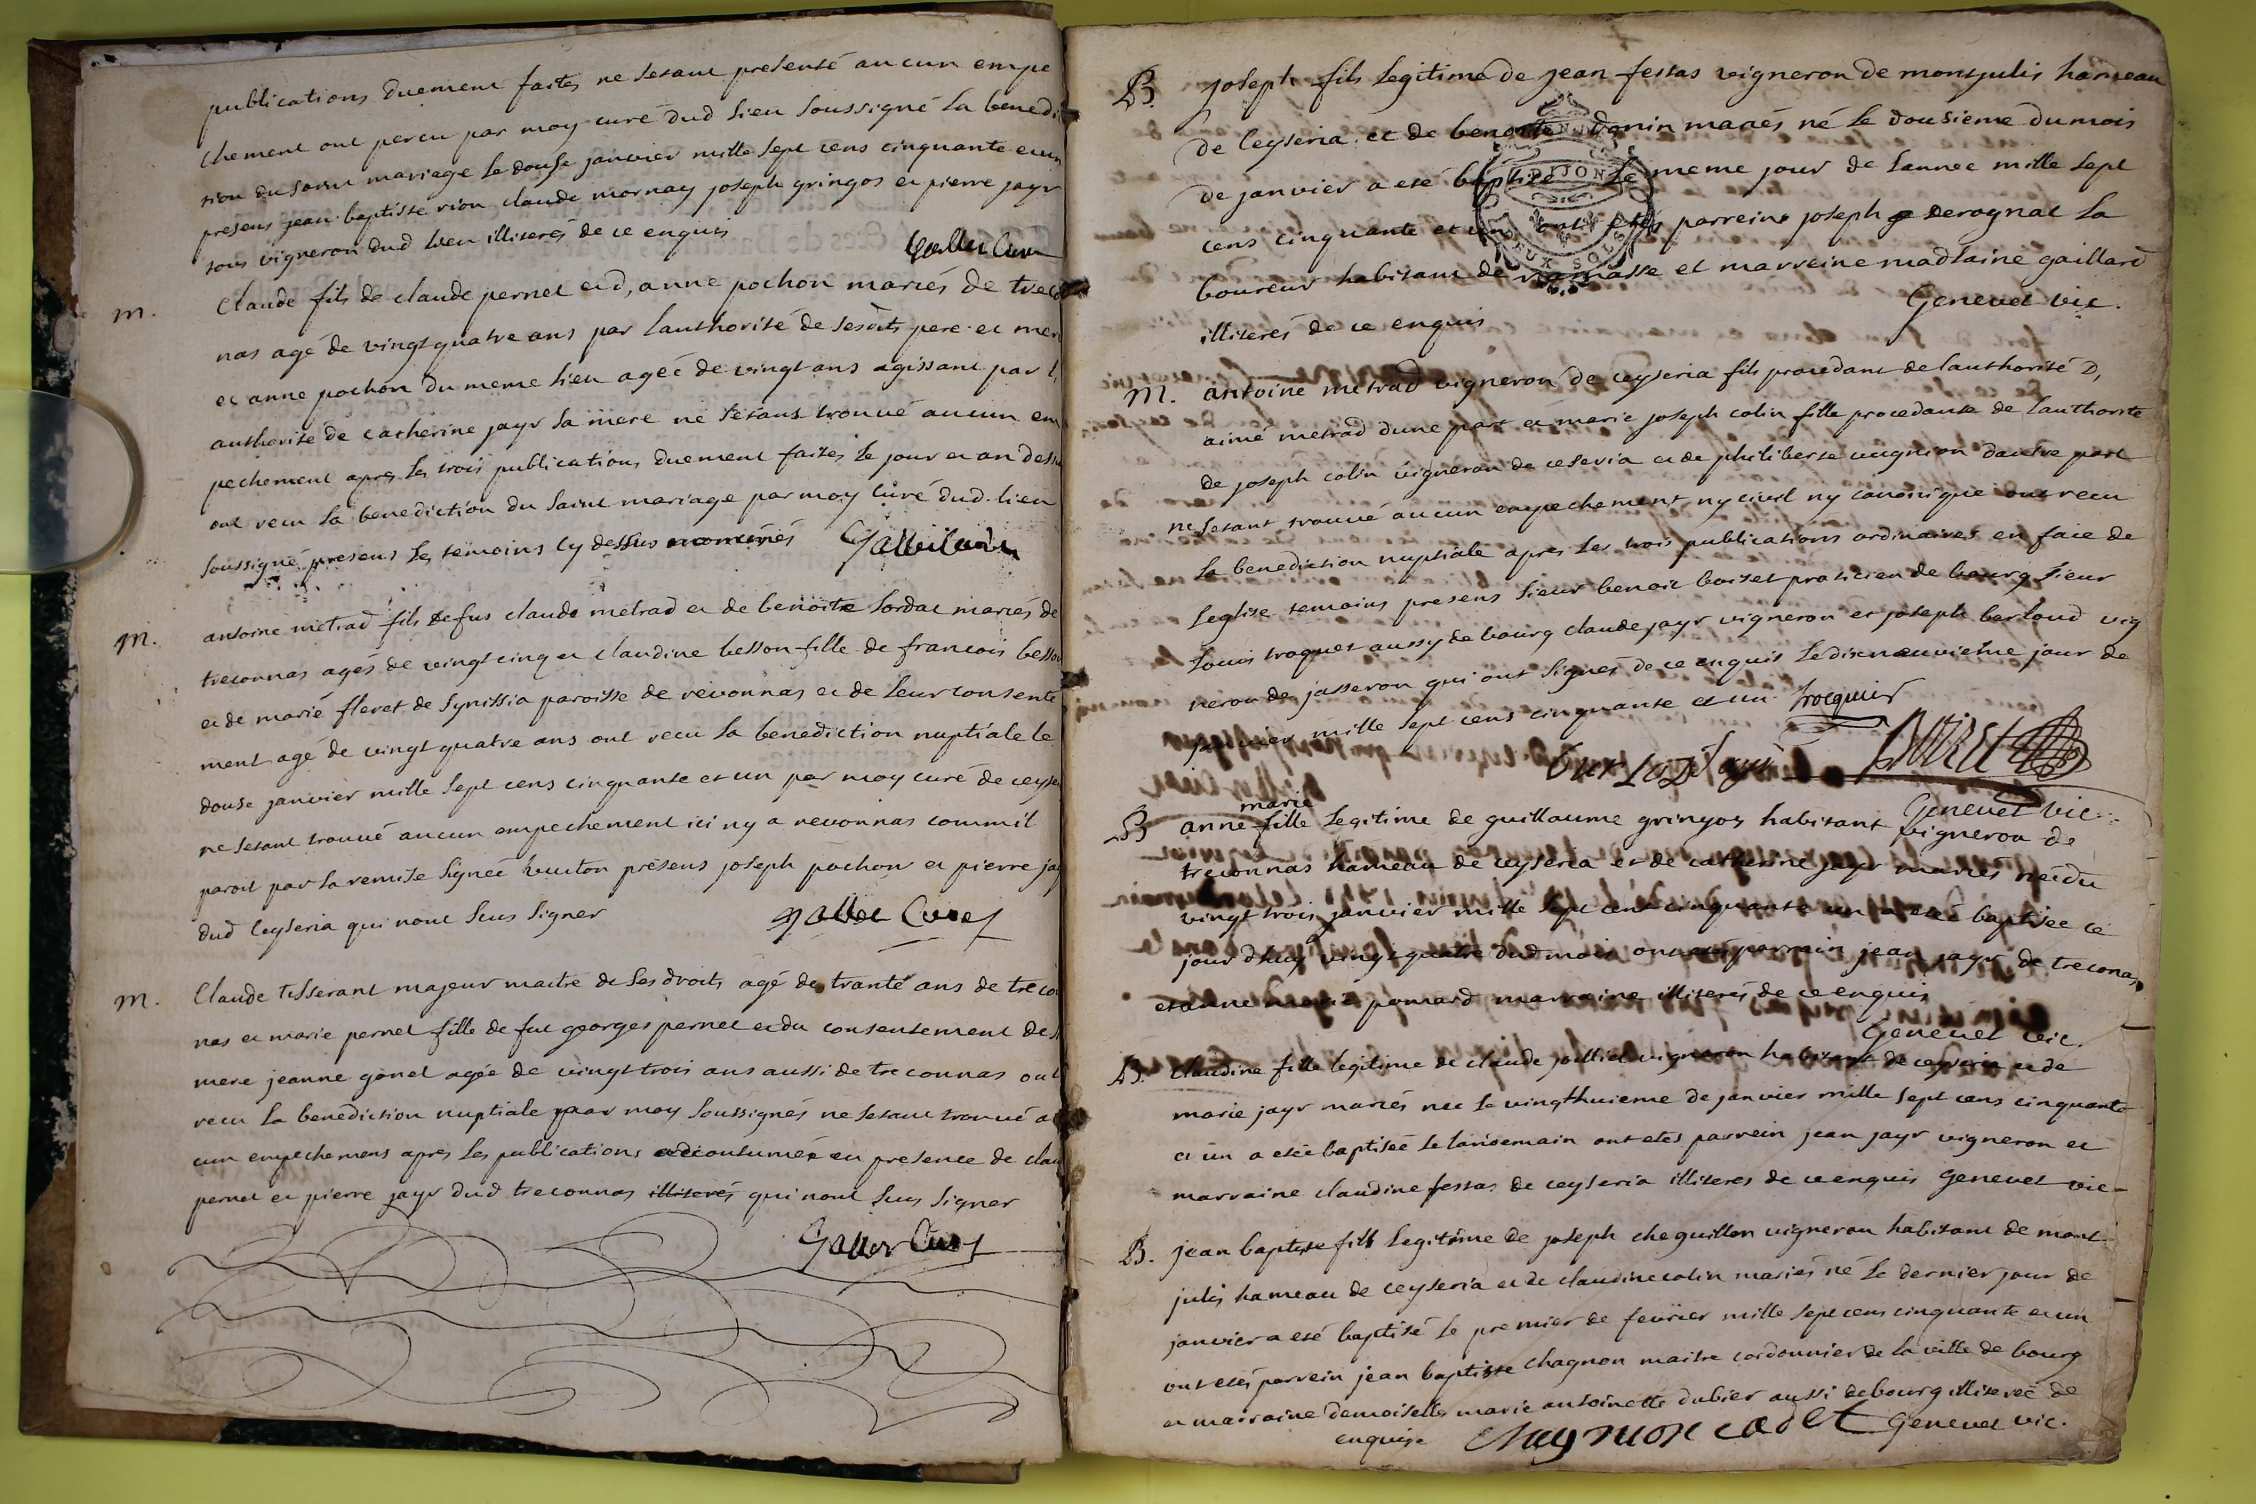 publications duement faites ne setant presenté aucun empe
chement ont percu par moy curé dud lieu soussigné la benedi
tion du saint mariage le douse janvier mille sept cens cinquante et un
presens jean baptiste rion claude mornay joseph gringos et pierre jayr
tous vigneron dud lieu illiterés de ce enquis
M. Claude fils de claude pernet et d, anne pochon mariés de treco
nas agé de vingt quatre ans par lauthorité de sesdts pere et mere
et anne pochon du meme lieu agée de vingt ans agissant par l,
authorité de catherine jayr sa mere ne setans trouvé aucun em
pechement apres les trois publications duement faites le jour et an dessu
ont recu la benediction du saint mariage par moy curé dud. lieu
soussigné presens les temoins cy dessus
M. antoine metrad fils defus claude metrad et de benoite sordat mariés de
treconnas agés de vingt cinq et claudine besson fille de francois besso
et de marie fleret de synissia paroisse de revonnas et de leur consente
ment agé de vingt quatre ans ont recu la benediction nuptiale le
douse janvier mille sept cens cinquante et un par moy curé de ceyse
ne setant trouvé aucun empechement ici ny a revonnas comm il
paroit par la remise signée buiton presens joseph pochon et pierre jay
dud Ceyseria qui nont sceu signer
M. Claude tisserant majeur maitre de ses droits agé de trante ans de treco
nas et marie pernet fille de fut georges pernet et du consentement de s
mere jeanne gonet agée de vingt trois ans aussi de treconnas ont
recu la benediction nuptiale par moy soussignés ne setant trouvé a
cun empechemens apres les publications accoutumée en presence de clau
pernet et pierre jayr dud treconnas illiterés qui nont sceu signer
B. joseph fils legitime de jean festas vigneron de montjulis hameau
de Ceyseria et de benoite Donin mariés né le dousieme du mois
de janvier a eté baptisé le meme jour de lannee mille sept
DIJON
cens cinquante et un ont etés parrein joseph derognat la
DEUX SOLS
boureur habitant de ramasse et marreine madlaine gaillard
illiterés de ce enquis
Genevet vic.
M. antoine metrad vigneron de ceyseria fils procedant de lauthorité D,
aimé metrad dune part et marie joseph colin fille procedante de lauthorite
de joseph colin vigneron de ceseria et de philiberte dautre part
ne setant trouvé aucun empechement ny civil ny canonique ont recu
la benediction nuptiale apres les trois publications ordinaires en face de
leglise temoins presens sieur benoit boiset praticien de bourg sieur
louis troquet aussy de bourg claude jayr vigneron et joseph berloud vig
neron de jasseron qui ont signés de ce enquis le disneuvieme jour de
janvier mille sept cens cinquante et un
Genevet vic
marie
B anne fille legitime de guillaume gringoz habitant vigneron de
treconnas hameau de ceyseria et de catherine jayr mariés nee du
vingt trois janvier mille sept cent cinquante un a eteé baptisee ce
jourdhuy vingt quatre dud mois ont eté parrain jean jayr de treconas
et anne marie pomard marraine illiterés de ce enquis
Genevet vic.
B. claudine fille legitime de claude joliet vigneron habitant de ceyseria et de
marie jayr mariés nee le vingthuieme de janvier mille sept cens cinquante
et un a eteé baptiseé le landemain ont etés parrein jean jayr vigneron et
marraine claudine festas de ceyseria illiteres de ce enquis Genevet vic
B. jean baptiste fils legitime de joseph cheguillon vigneron habitant de mont
julis hameau de ceyseria et de claudine colin mariés né le dernier jour de
janvier a eté baptisé le premier de fevrier mille sept cens cinquante et un
ont etés parrein jean baptiste chagnon maitre cordonnier de la ville de bourg
et marraine demoiselle marie antoinette dubier aussi de bourg illitereé de
enquise Chagnon cadet Genevet vic.